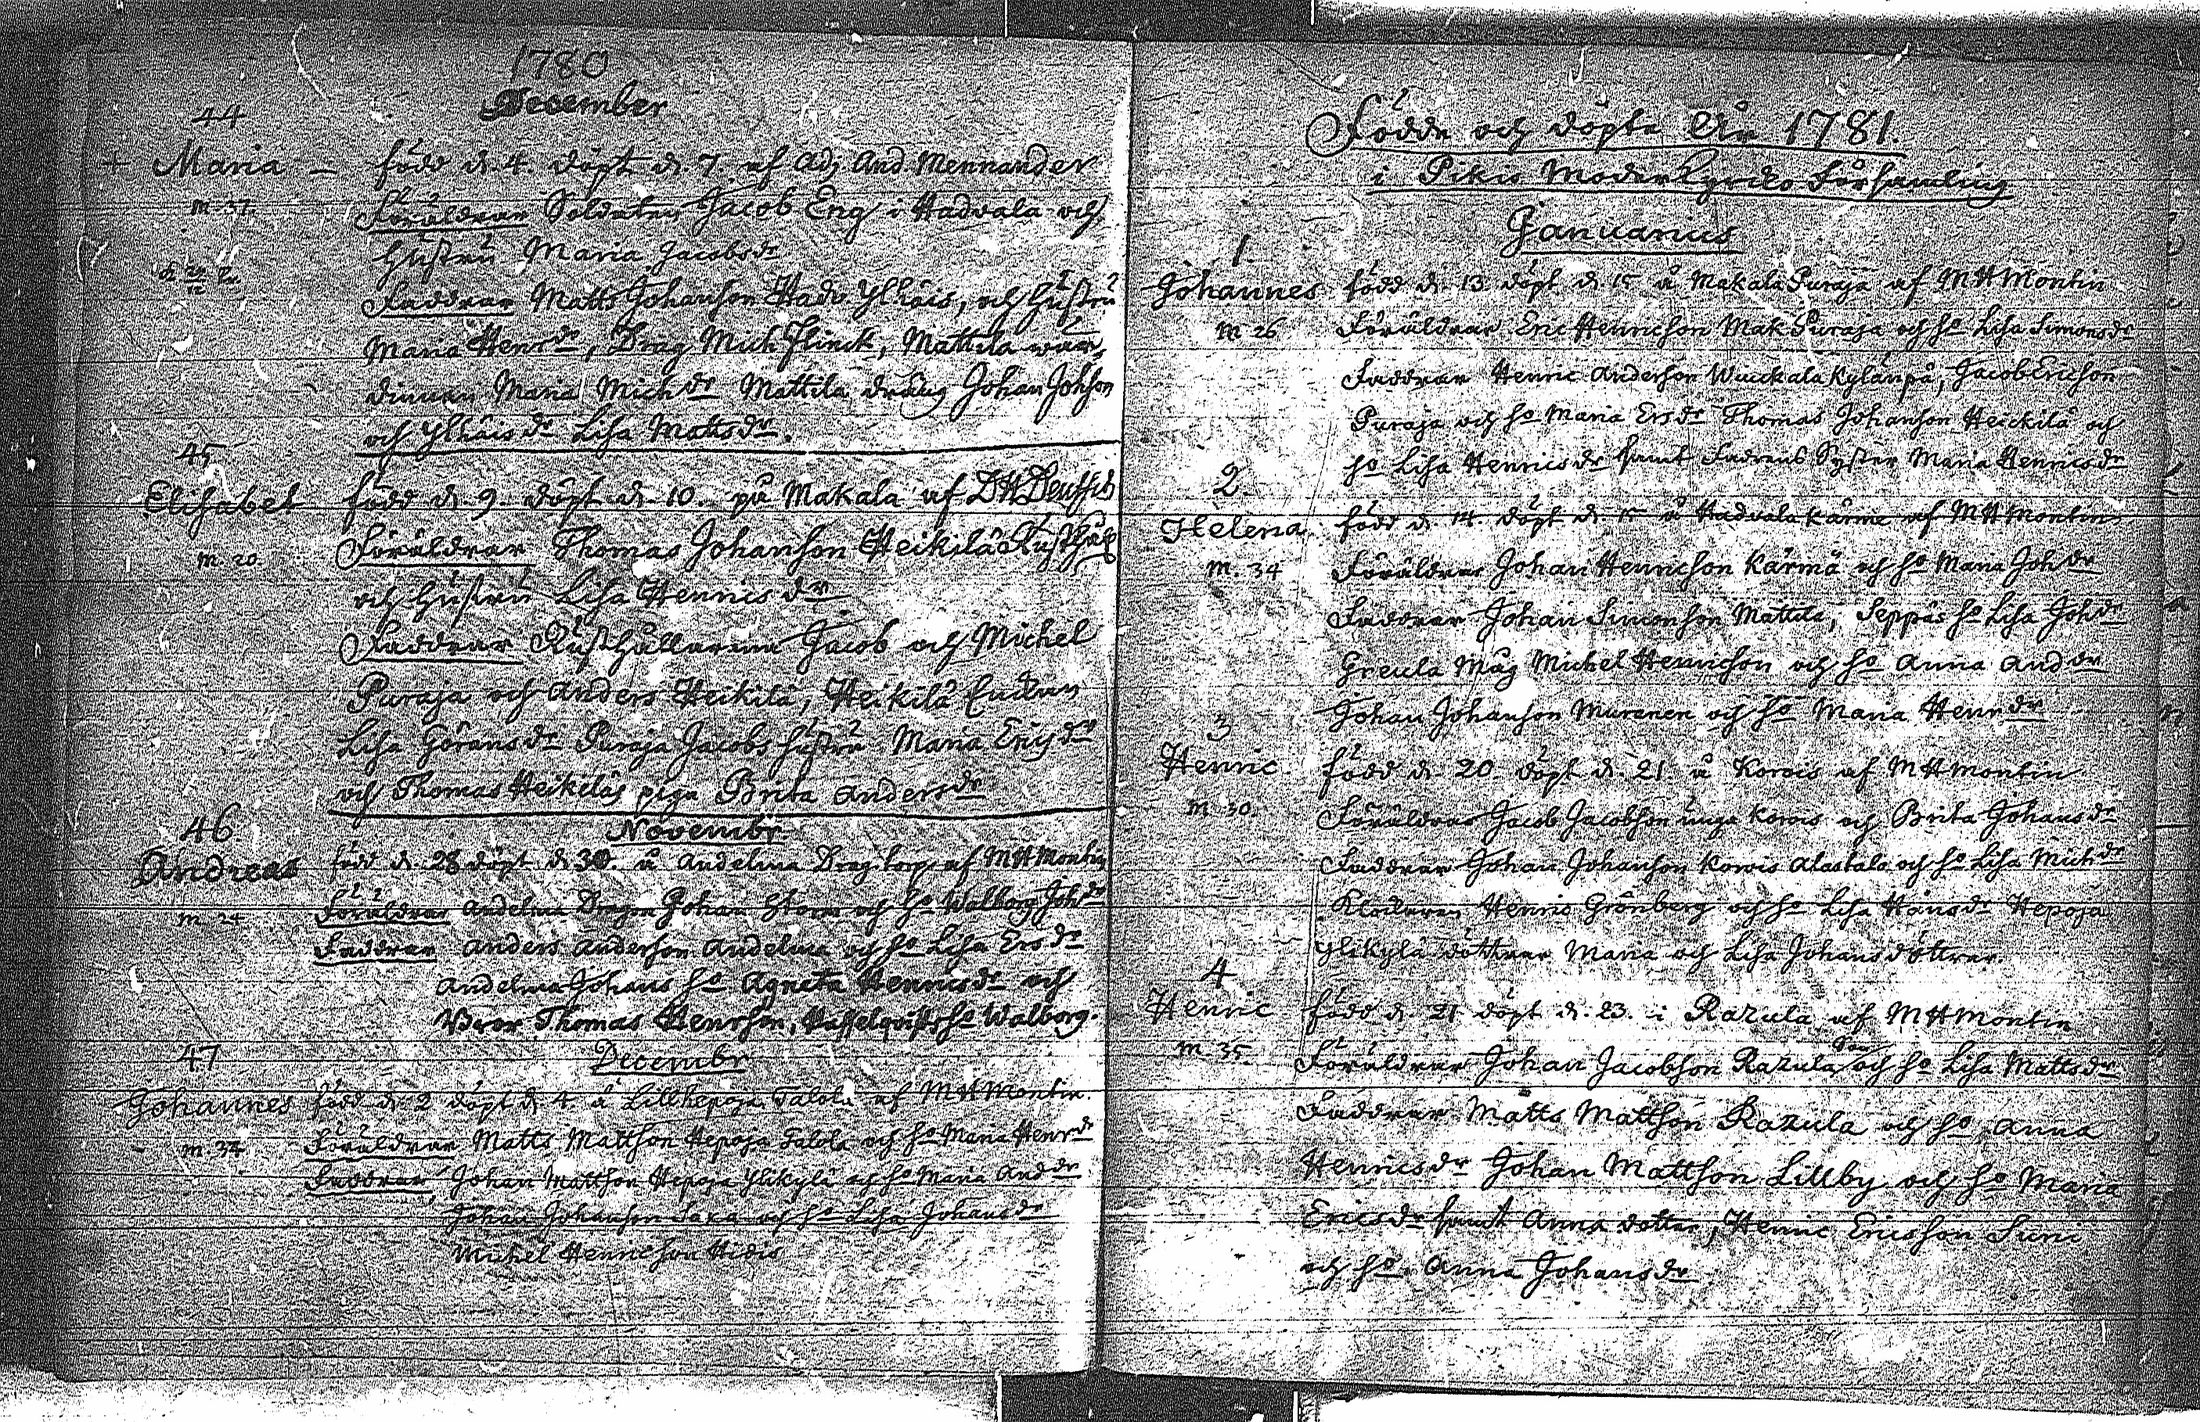 1780
December
44
+ Maria — född d. 4. döpt d. 7. af Adj And. Mennander
m. 37. Föräldrar Soldaten Jacob Eng i Hadvala och
Hustru Maria Jacobsdr
Faddrar Matts Johanson Hadv Ylhäis, och Hustru
Maria Henrsdr, Drag Mich Flinck, Mattila wär,
dinnan Maria Michdr Mattila dräng Johan Johson
och Ylhäis dr Lisa Mattsdr.
45
Elisabet född d. 9. döpt d. 10. på Makala af DH
m. 20 Föräldrar Thomas Johanson Heikilä
och Hustru Lisa Henricsdr
Faddrar Rusthållarena Jacob och Michel
Puraja och Anders Heikilä, Heikilä Enckan
Lisa Göransdr Puraja Jacobs hustru Maria Ericsdr
och Thomas Heikiläs piga Brita Andersdr
46 Novembr
Andreas född d. 28 döpt d 30. å Andelma Drag. torp af MHMontin
m. 24 Föräldrar Andelma Dragon Johan Storm och ho Walborg Johdr
Faddrar Anders Anderson Andelma och ho Lisa Ersdr
Andelma Johans ho Agneta Henricsdr och
Bror Thomas Henrson, Hasselqvists ho Walborg.
47 Decembr
Johannes född d. 2 döpt d 4. å Lill Hepoja Talola af MHMontin.
m. 34 Föräldrar Matts Mattson Hepoja Talola och ho Maria Henrdr
Faddrar Johan Mattson Hepoja Ylikylä och ho Maria Anddr
Johan Johanson Saxa och ho Lisa Johansdr
Michel Henricson Hidis
Födde och döpte År 1781.
i Pikis Moderkyrcko Församling
Januarius
1.
Johannes född d. 13 döpt d. 15 å Makala Puraja af MHMontin
m 26 Föräldrar Eric Henricson Mak Puraja och ho Lisa Simonsdr
Faddrar Henric Anderson Wuckala Kylänpä, Jacob Ericson
Puraja och ho Maria Ersdr Thomas Johanson Heickilä och
ho Lisa Henricsdr samt Fadrens Syster Maria Henricsdr
2
Helena född d. 14. döpt d. 15 å Hadvala Kärmä af MHMontin
m. 34 Föräldrar Johan Henricson Kärmä och ho Maria Johdr
Faddrar Johan Simonson Mattila, Seppäs ho Lisa Johdr
Greula Måg Michel Henricson och ho Anna Anddr
Johan Johanson Muronen och ho Maria Henrdr
3
Henric född d 20 döpt d. 21. å Korois af MHMontin
m. 30. Föräldrar Jacob Jacobson unge Korois och Brita Johansdr
Faddrar Johan Johanson Korois Alastalo och ho Lisa Michdr
Klockaren Henric Grönberg och ho Lisa Hansdr Hepoja
Ylikylä döttrar Maria och Lisa Johans döttrar.
4
Henric född d 21 döpt d. 23. i Razula af MHMontin
m. 35. Föräldrar Johan Jacobson Razula och ho Lisa Mattsdr
Faddrar Matts Mattson Razula och ho Anna
Henricsdr Johan Mattson Lillby och ho Maria
Ericsdr samt Anna dotter, Henric Ericsson Suni
och ho. Anna Johansdr